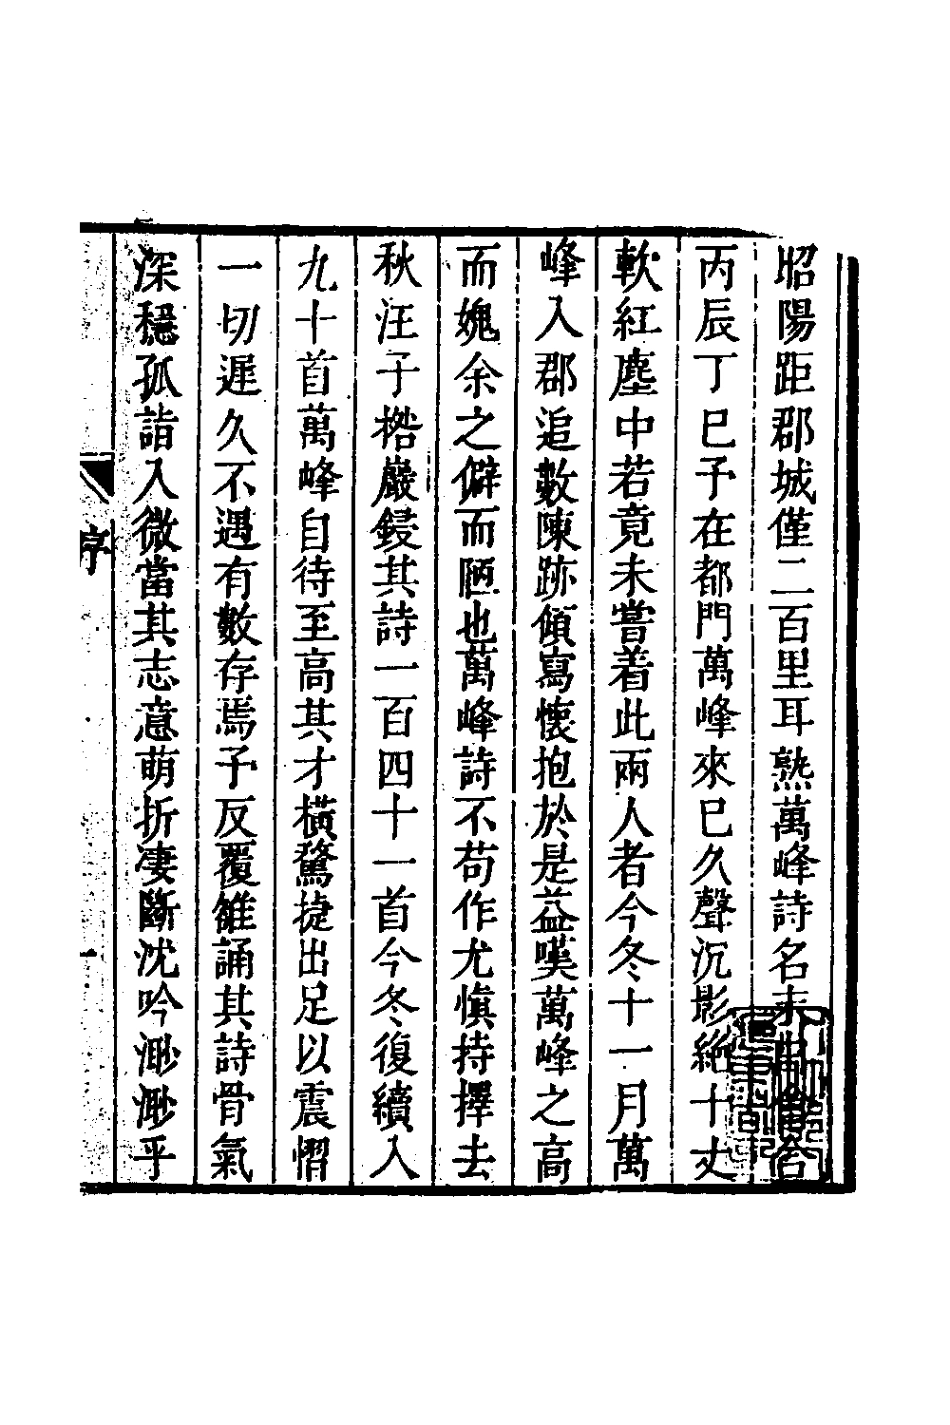 昭陽距郡城僅二百里耳熟萬峰詩名未
丙辰丁巳予在都門萬峰來已久聲沉影絶十丈
軟紅塵中若竟未嘗着此兩人者今冬十一月萬
峰入郡追數陳跡傾寫懷抱於是益嘆萬峰之高
而媿余之僻而陋也萬峰詩不苟作尤慎持擇去
秋汪子楷巖鋟其詩一百四十一首今冬復續入
九十首萬峰自待至高其才橫騖捷出足以震慴
一切遲久不遇有數存焉予反覆雒誦其詩骨氣
深穩孤詣入微當其志意萌折凄斷沈吟渺渺乎
序
一